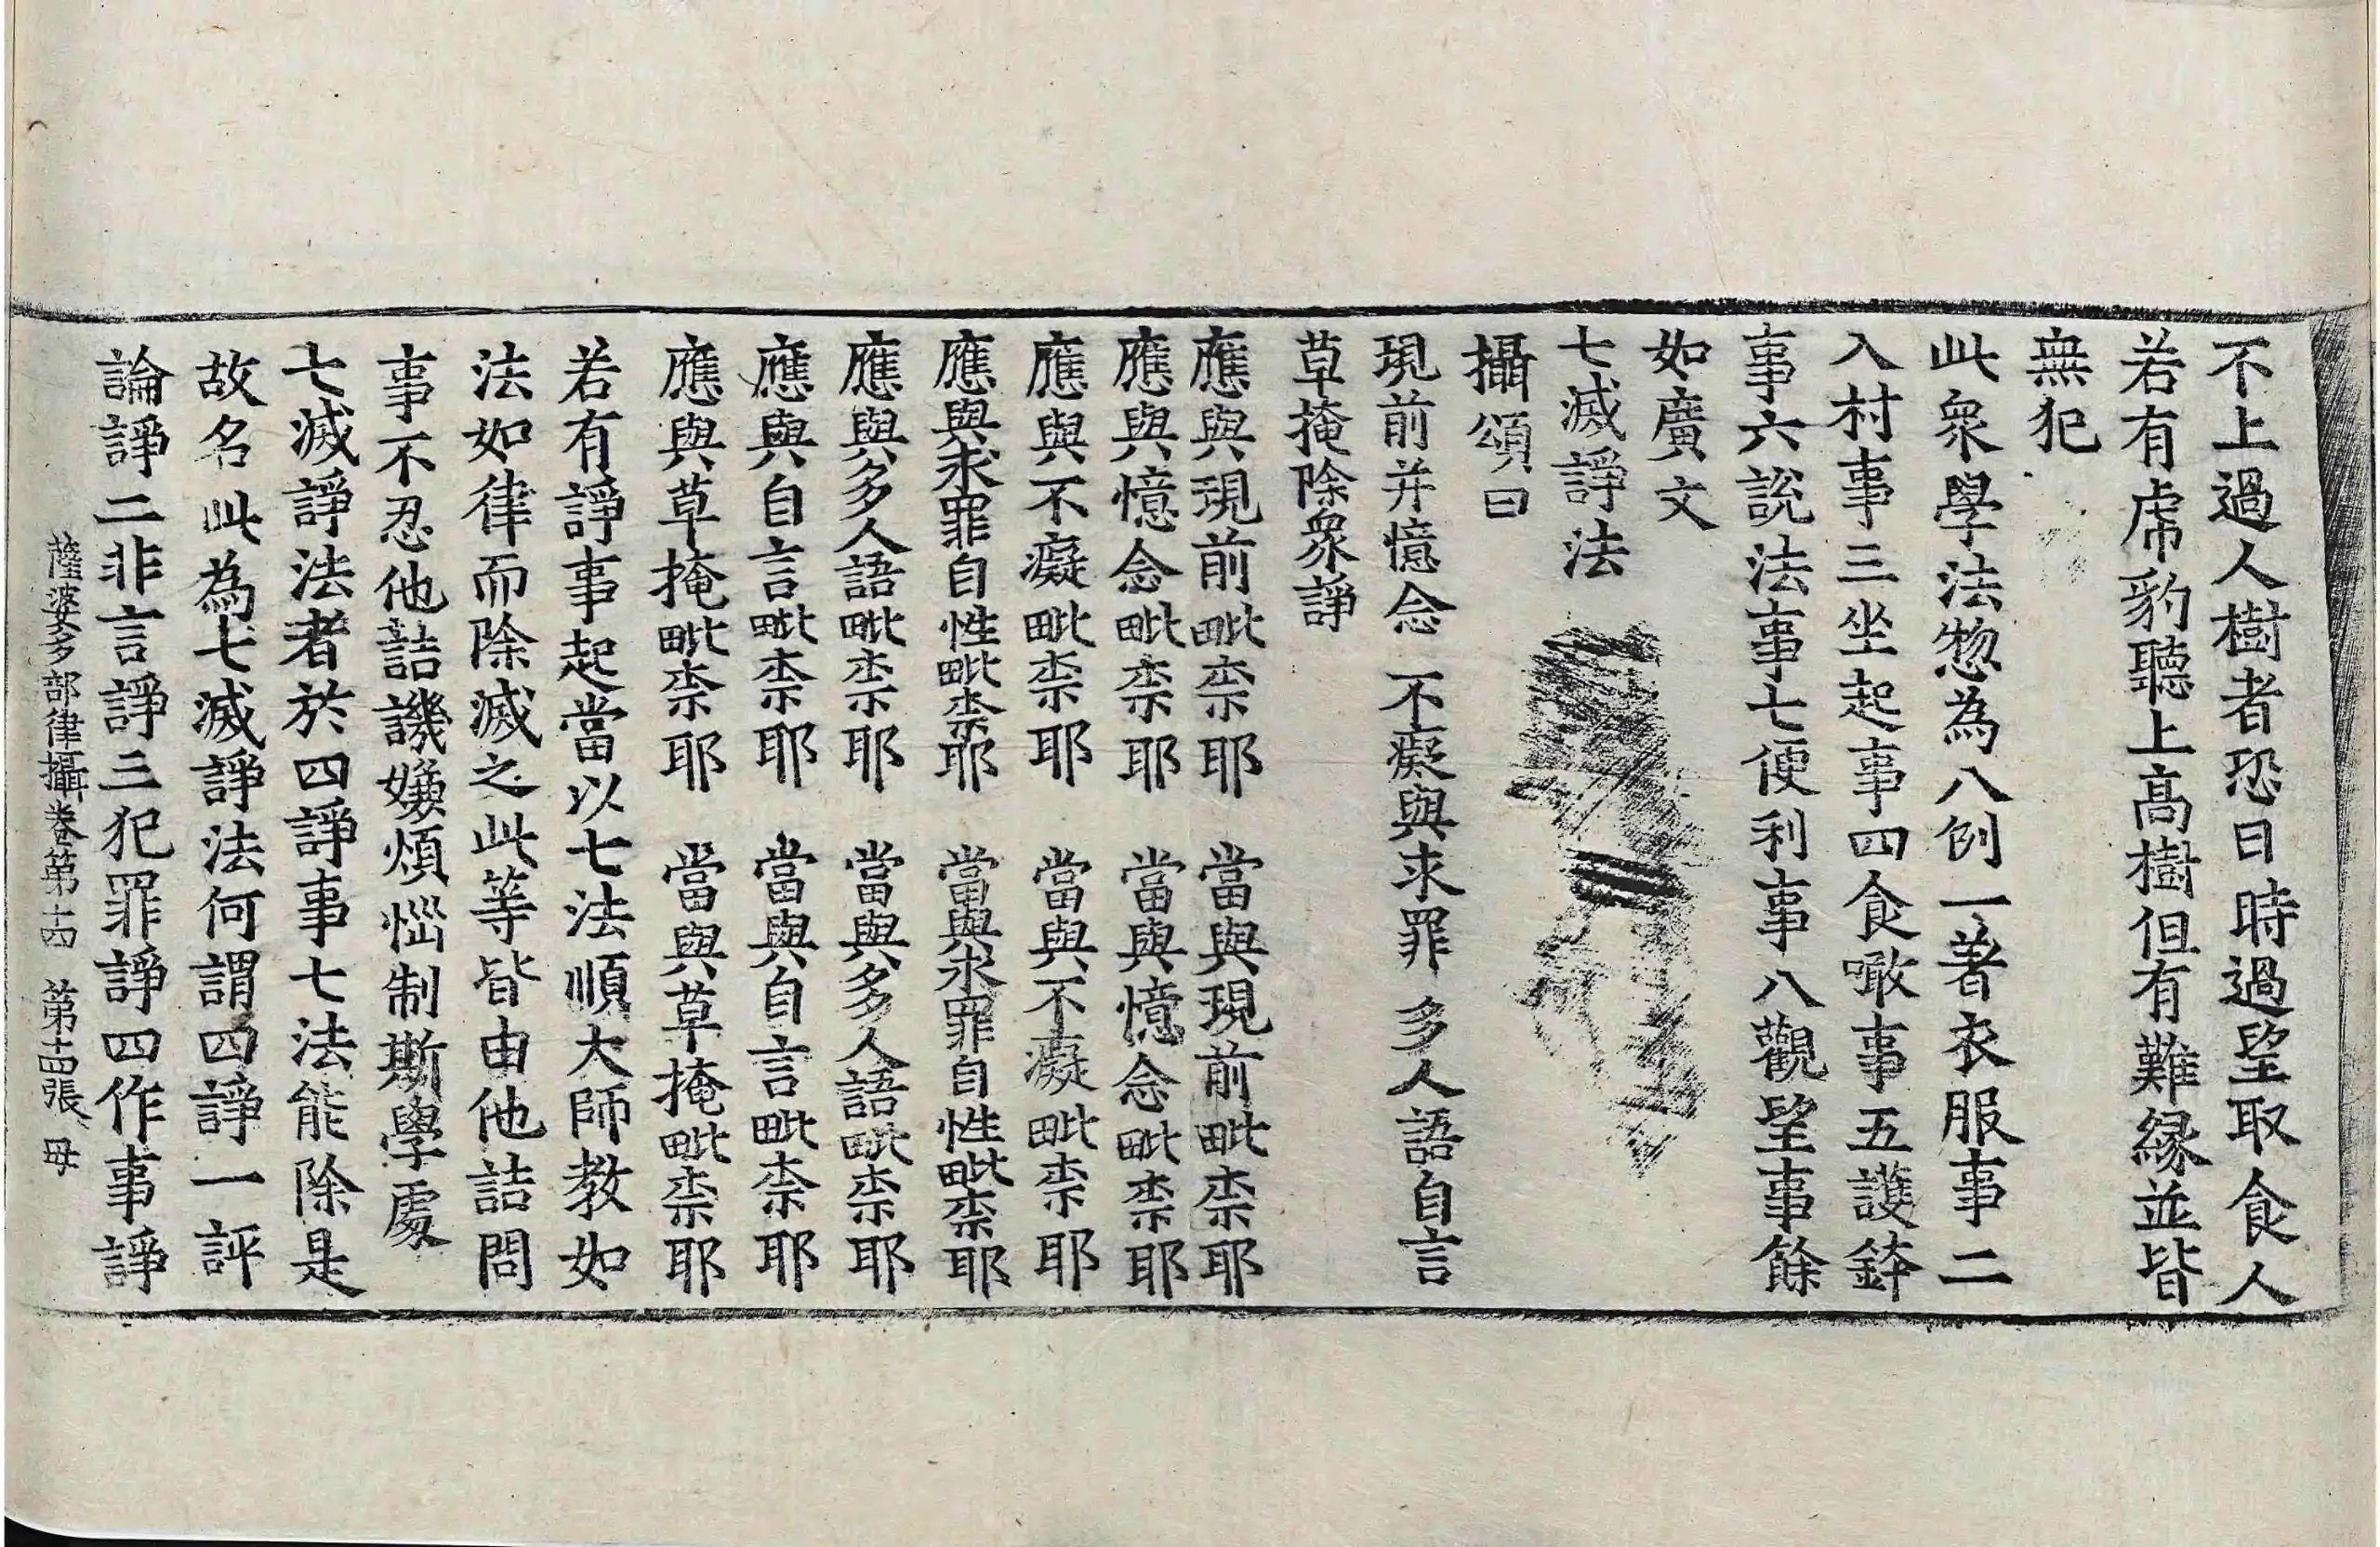 不上過人樹者恐日時過望取食人
若有虎豹聽上高樹但有難縁並皆
無犯
此衆學法惣為八例一著衣服事二
入村事三坐起事四食噉事五護鉢
事六說法事七便利事八觀望事餘
如廣文
七滅諍法
攝頌曰
現前并憶念 不癡與求罪 多人語自言
草掩除衆諍
應與現前毗柰耶 當與現前毗柰耶
應與憶念毗柰耶 當與憶念毗柰耶
應與不癡毗柰耶 當與不癡毗柰耶
應與求罪自性毗柰耶 當與求罪自性毗柰耶
應與多人語毗柰耶 當與多人語毗柰耶
應與自言毗柰耶 當與自言毗柰耶
應與草掩毗柰耶 當與草掩毗柰耶
若有諍事起當以七法順大師教如
法如律而除滅之此等皆由他詰問
事不忍他詰譏嫌煩惱制斯學處
七滅諍法者於四諍事七法能除是
故名此為七滅諍法何謂四諍一評
論諍二非言諍三犯罪諍四作事諍
薩婆多部律攝卷第十四 第十四張 毋